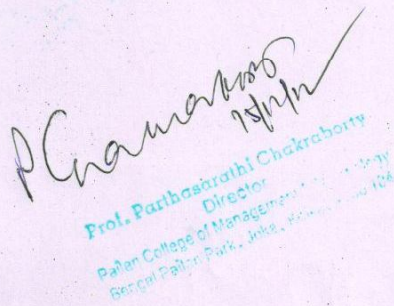 P Chakraborty
Prof. Parthasarathi Chakraborty
Director
Pailan College of Management
Bengal Pailan Park, Joka,